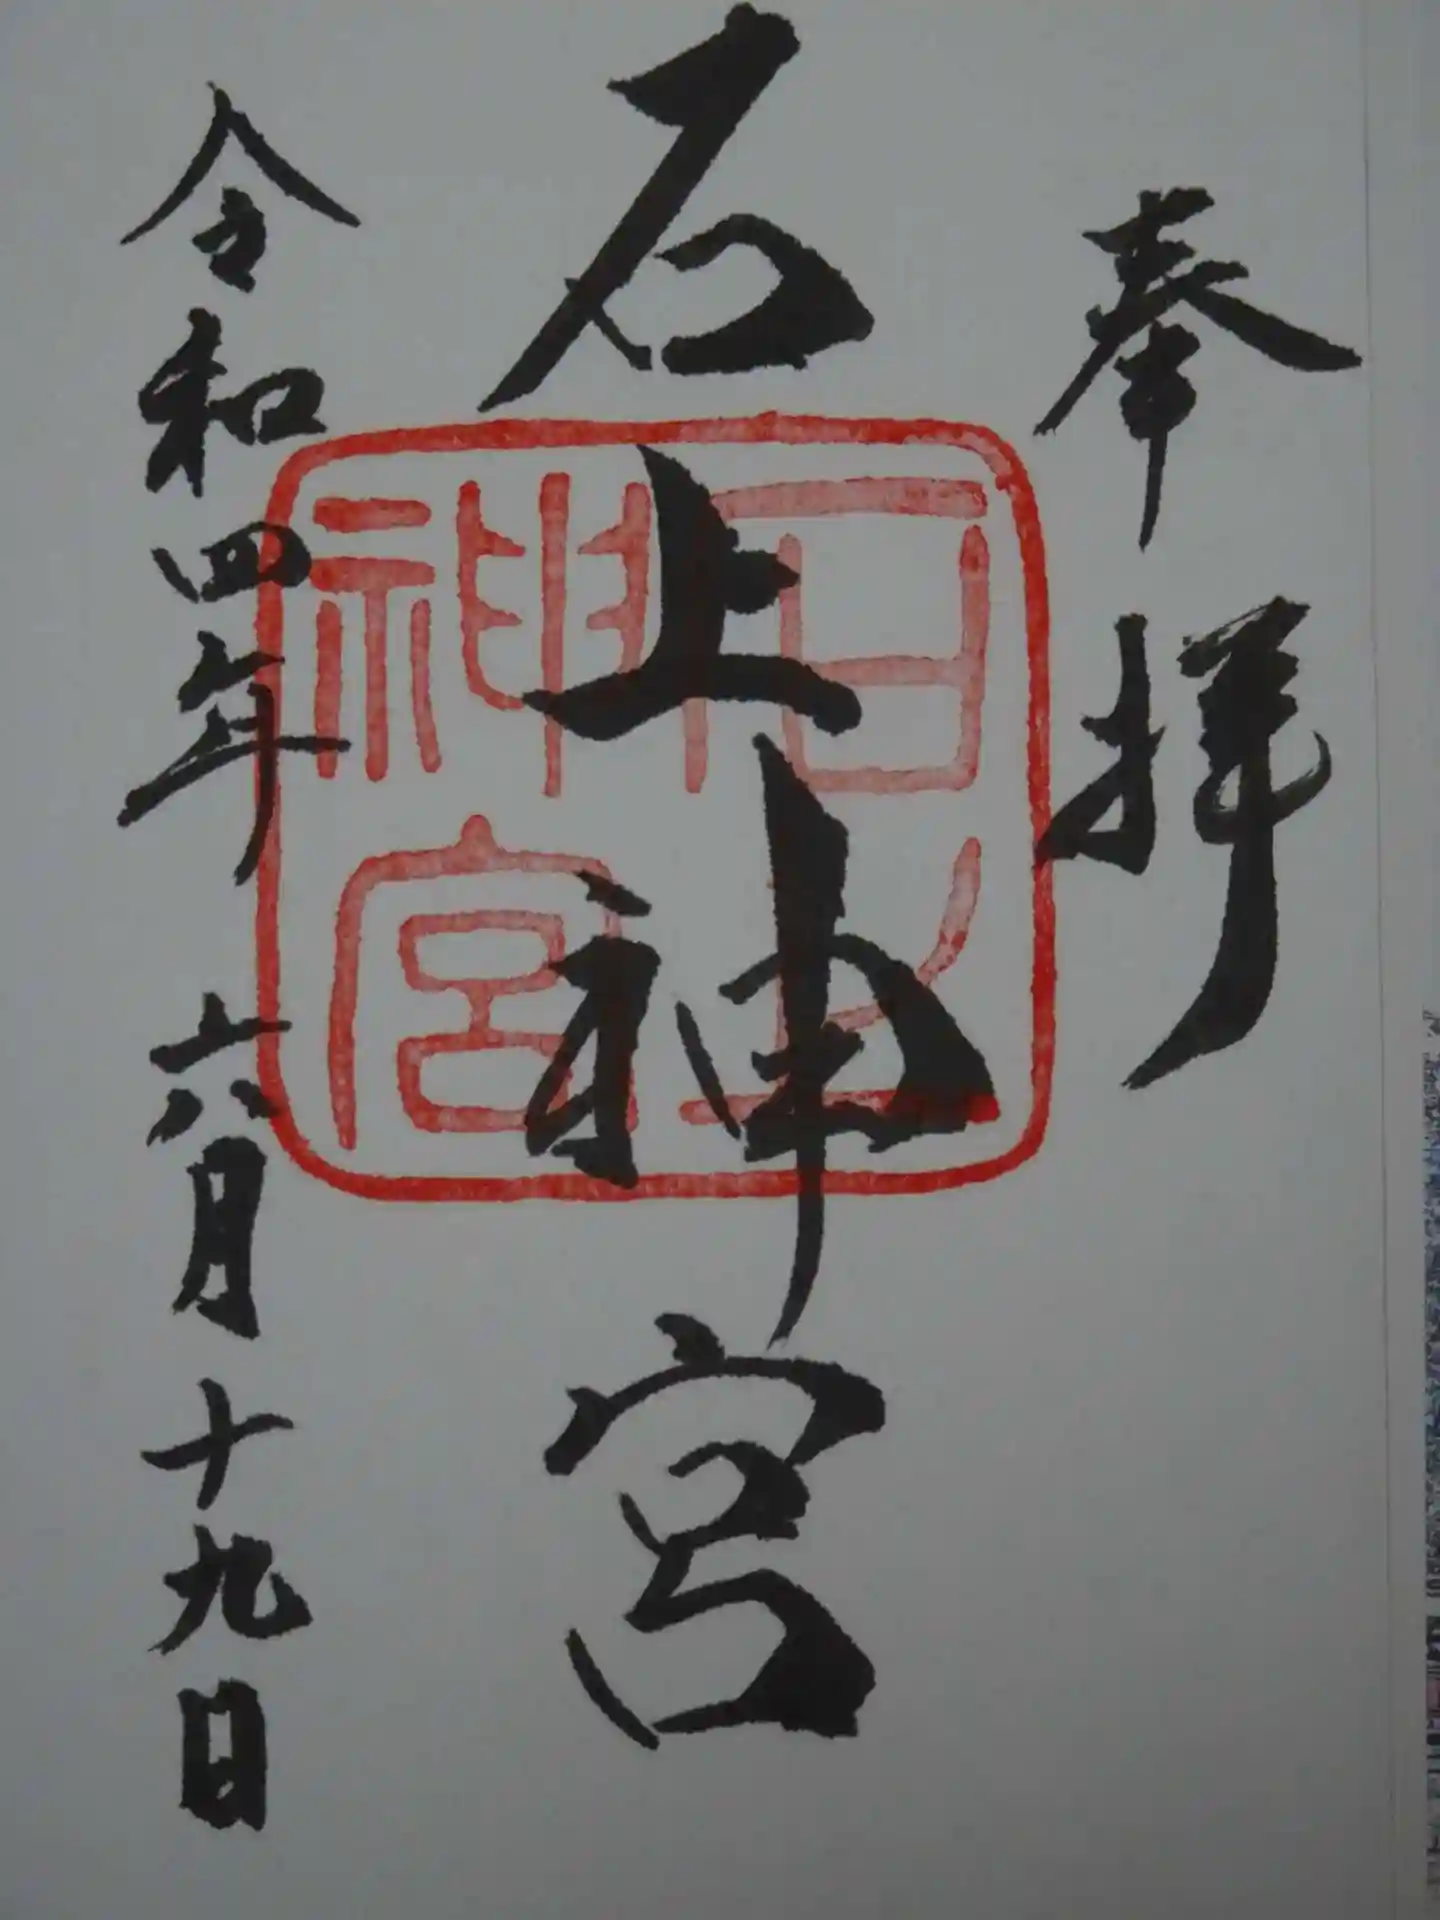 奉拝
石上神宮
令和四年六月十九日
石上神宮